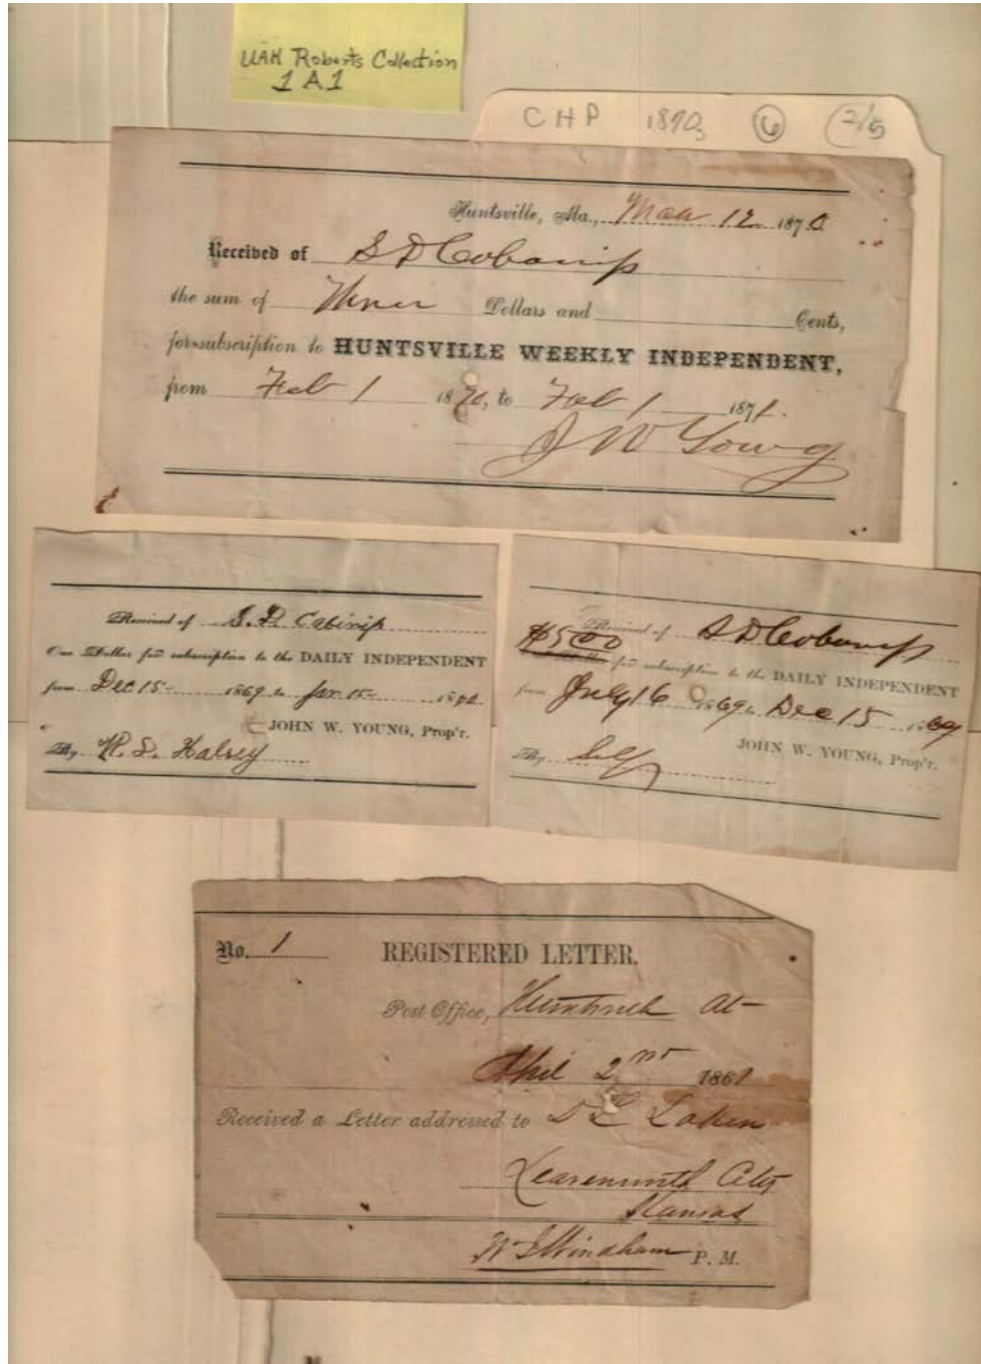 UAH Roberts Collection
1A1
CHP 1870s 6 2/5
Huntsville, Ala., Mar 12 1870
Received of S D Cabaniss
the sum of Three Dollars and Cents,
for subscription to HUNTSVILLE WEEKLY INDEPENDENT,
from Feb 1 1870, to Feb 1 1871.
J W Young
Received of S. D. Cabiniss
One Dollar for subscription to the DAILY INDEPENDENT
from Dec 15 1869 to Jan 15 1870
JOHN W. YOUNG, Prop'r.
By W. L. Halsey
Received of S D Cabaniss
$5 00 for subscription to the DAILY INDEPENDENT
from July 16 1869 to Dec 15 1869
JOHN W. YOUNG, Prop'r.
By Self
No. 1 REGISTERED LETTER.
Post Office, Huntsville Al
April 2nd 1861
Received a Letter addressed to D L Lakin
Leavenworth City
Kansas
Windham P. M.